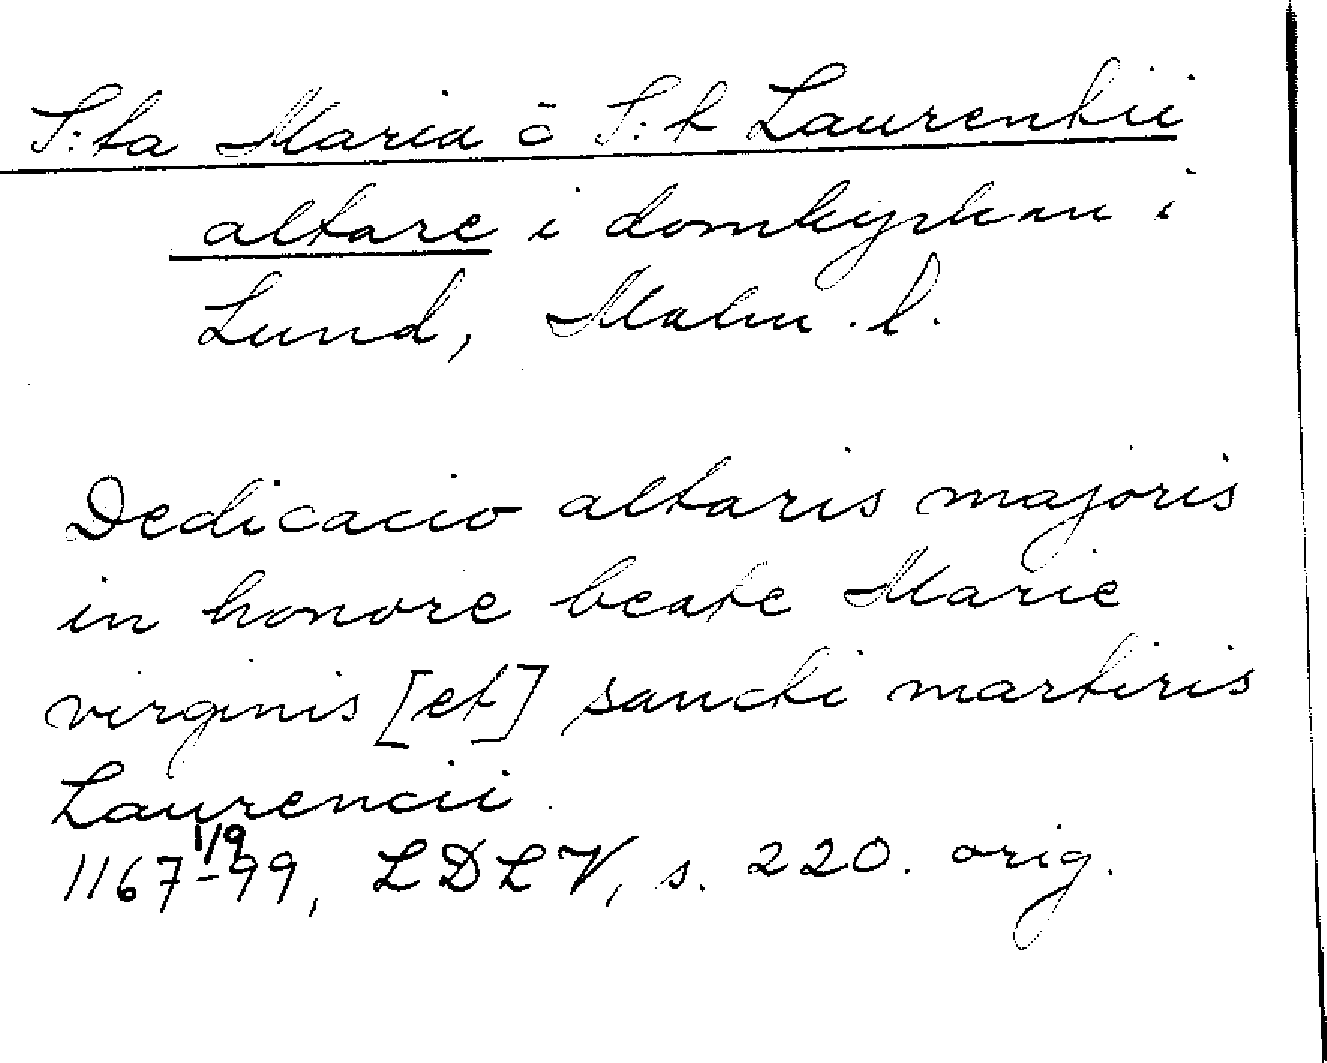 S:ta Maria o S:t Laurentii
altare i domkyrkan i
Lund, Malm. l.
Dedicacio altaris majoris
in honore beate Marie
virginis [et] sancti martiris
Laurencii.
1/9
1167-99, LDLV, s. 220. orig.